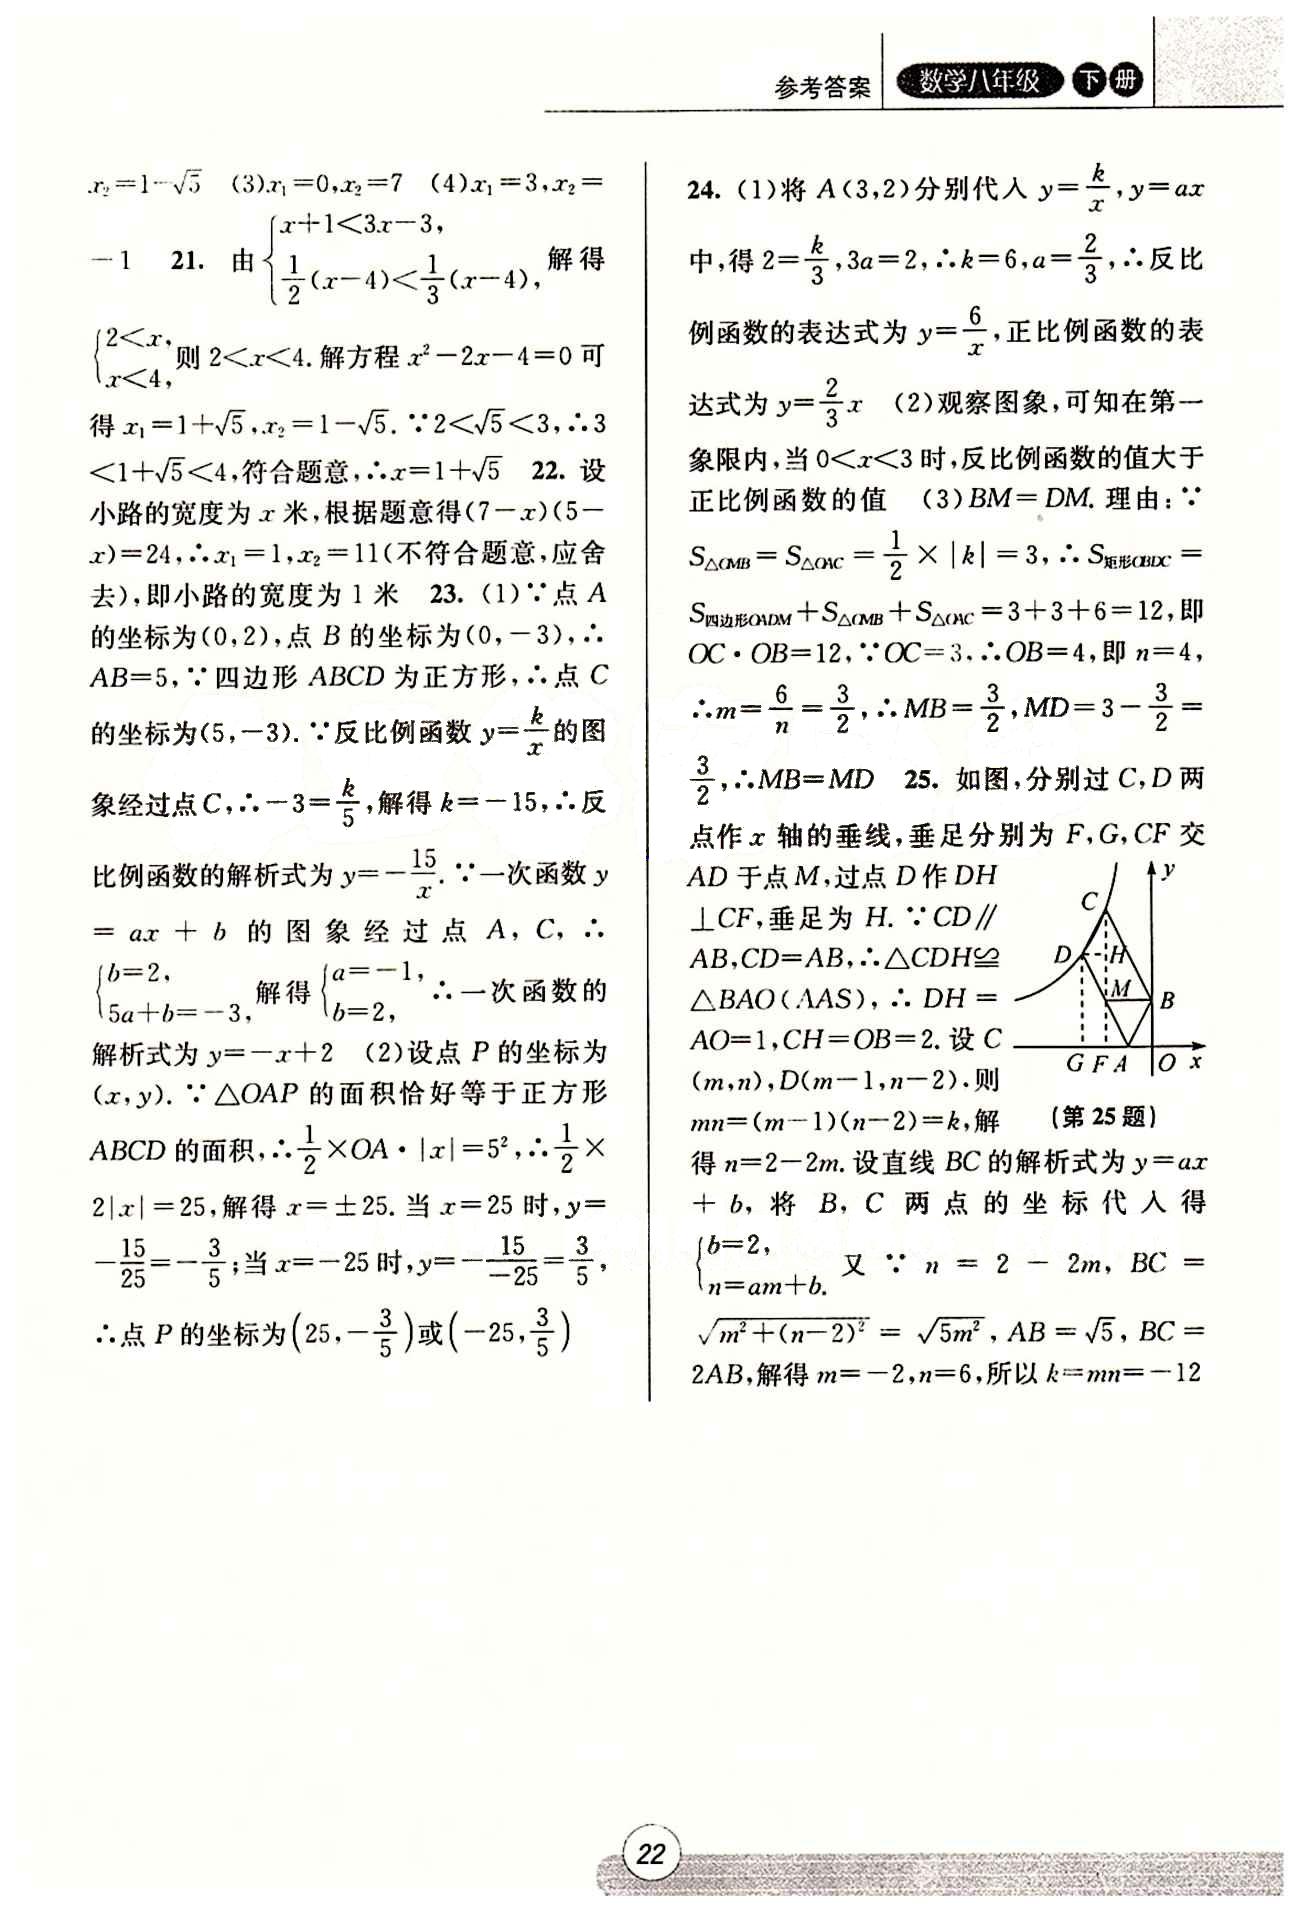 参考答案 数学八年级 下 册
x₂=1-√5 (3)x₁=0,x₂=7 (4)x₁=3,x₂=
-1 21. 由{x+1<3x-3, 1/2(x-4)<1/3(x-4), 解得
{2<x, x<4, 则 2<x<4. 解方程 x²-2x-4=0 可
得 x₁=1+√5,x₂=1-√5. ∵2<√5<3,∴3
<1+√5<4,符合题意,∴x=1+√5 22. 设
小路的宽度为 x 米,根据题意得(7-x)(5-
x)=24,∴x₁=1,x₂=11(不符合题意,应舍
去),即小路的宽度为 1 米 23. (1)∵点 A
的坐标为(0,2),点 B 的坐标为(0,-3),∴
AB=5,∵四边形 ABCD 为正方形,∴点 C
的坐标为(5,-3). ∵反比例函数 y=k/x的图
象经过点 C,∴-3=k/5,解得 k=-15,∴反
比例函数的解析式为 y=-15/x. ∵一次函数 y
= ax + b 的图象经过点 A, C, ∴
{b=2, 5a+b=-3, 解得{a=-1, b=2, ∴一次函数的
解析式为 y=-x+2 (2)设点 P 的坐标为
(x,y). ∵△OAP 的面积恰好等于正方形
ABCD 的面积,∴1/2×OA·|x|=5²,∴1/2×
2|x|=25,解得 x=±25. 当 x=25 时,y=
-15/25=-3/5;当 x=-25 时,y=-15/-25=3/5,
∴点 P 的坐标为(25,-3/5)或(-25,3/5)
24. (1)将 A(3,2)分别代入 y=k/x,y=ax
中,得 2=k/3,3a=2,∴k=6,a=2/3,∴反比
例函数的表达式为 y=6/x,正比例函数的表
达式为 y=2/3x (2)观察图象,可知在第一
象限内,当 0<x<3 时,反比例函数的值大于
正比例函数的值 (3)BM=DM. 理由:∵
S△OMB=S△OAC=1/2×|k|=3,∴S矩形OBDC=
S四边形OADM+S△OMB+S△OAC=3+3+6=12,即
OC·OB=12,∵OC=3,∴OB=4,即 n=4,
∴m=6/n=3/2,∴MB=3/2,MD=3-3/2=
3/2,∴MB=MD 25. 如图,分别过 C,D 两
点作 x 轴的垂线,垂足分别为 F,G,CF 交
AD 于点 M,过点 D 作 DH
⊥CF,垂足为 H. ∵CD∥
AB,CD=AB,∴△CDH≌
△BAO(AAS), ∴ DH=
AO=1,CH=OB=2. 设 C
(m,n),D(m-1,n-2). 则
mn=(m-1)(n-2)=k,解
y
C
D H
M B
G F A O x
(第 25 题)
得 n=2-2m. 设直线 BC 的解析式为 y=ax
+ b, 将 B, C 两点的坐标代入得
{b=2, n=am+b. 又 ∵ n = 2 - 2m, BC =
√m²+(n-2)² = √5m², AB=√5, BC=
2AB,解得 m=-2,n=6,所以 k=mn=-12
22